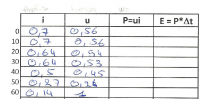 i u P=ui E = P*Δt
0 0,7 0,56
10 0,7 0,56
20 0,64 0,54
30 0,64 0,53
40 0,5 0,45
50 0,37 0,34
60 0,14 1